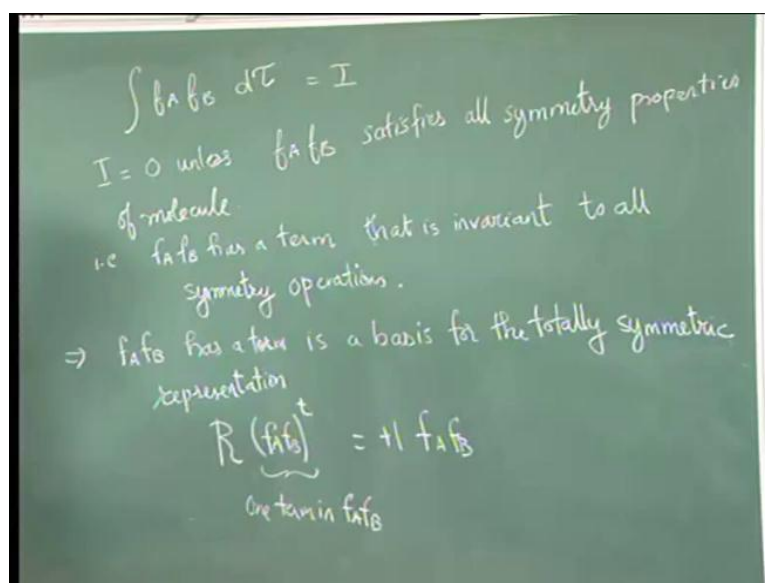 ∫ fA fB dτ = I
I = 0 unless fA fB satisfies all symmetry properties
of molecule.
i.e fA fB has a term that is invariant to all
symmetry operations.
⇒ fA fB has a term is a basis for the totally symmetric
representation
R (fA fB)^t = +1 fA fB
One term in fA fB